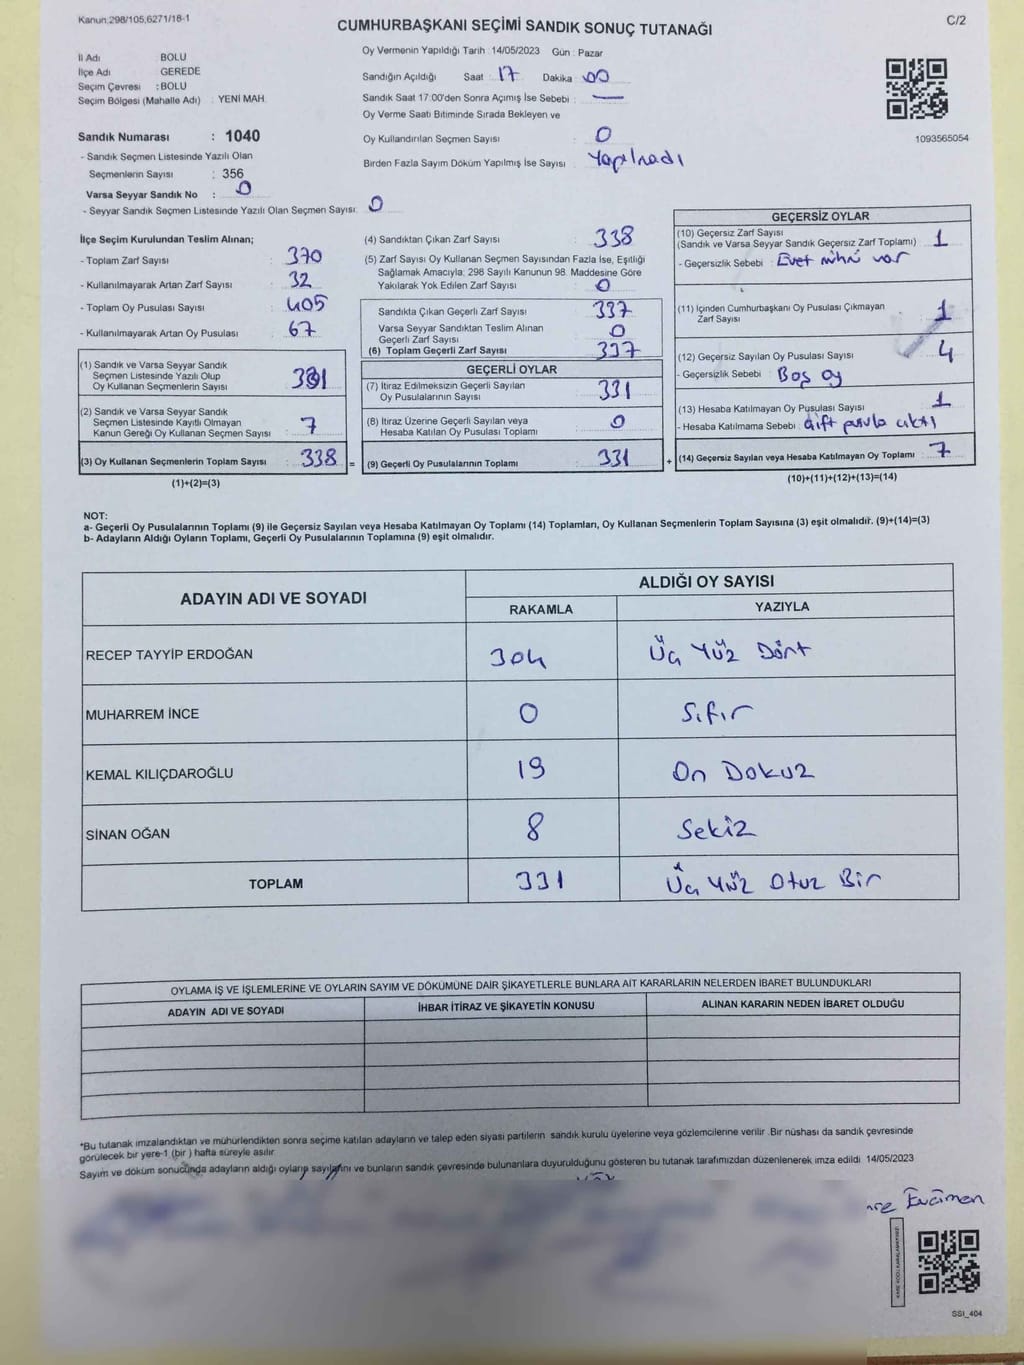 Kanun,298/105,6271/18-1
C/2
CUMHURBAŞKANI SEÇİMİ SANDIK SONUÇ TUTANAĞI
İl Adı : BOLU
İlçe Adı : GEREDE
Seçim Çevresi : BOLU
Seçim Bölgesi (Mahalle Adı) : YENİ MAH.
Sandık Numarası : 1040
- Sandık Seçmen Listesinde Yazılı Olan
Seçmenlerin Sayısı : 356
Varsa Seyyar Sandık No : 0
- Seyyar Sandık Seçmen Listesinde Yazılı Olan Seçmen Sayısı: 0
Oy Vermenin Yapıldığı Tarih :14/05/2023 Gün : Pazar
Sandığın Açıldığı Saat : 17 Dakika : 00
Sandık Saat 17:00'den Sonra Açımış İse Sebebi : —
Oy Verme Saati Bitiminde Sırada Bekleyen ve
Oy Kullandırılan Seçmen Sayısı : 0
Birden Fazla Sayım Döküm Yapılmış İse Sayısı : Yapılmadı
1093565054
İlçe Seçim Kurulundan Teslim Alınan;
- Toplam Zarf Sayısı : 370
- Kullanılmayarak Artan Zarf Sayısı : 32
- Toplam Oy Pusulası Sayısı : 405
- Kullanılmayarak Artan Oy Pusulası : 67
(1) Sandık ve Varsa Seyyar Sandık
Seçmen Listesinde Yazılı Olup
Oy Kullanan Seçmenlerin Sayısı : 331
(2) Sandık ve Varsa Seyyar Sandık
Seçmen Listesinde Kayıtlı Olmayan
Kanun Gereği Oy Kullanan Seçmen Sayısı : 7
(3) Oy Kullanan Seçmenlerin Toplam Sayısı : 338 =
(1)+(2)=(3)
(4) Sandıktan Çıkan Zarf Sayısı : 338
(5) Zarf Sayısı Oy Kullanan Seçmen Sayısından Fazla İse, Eşitliği
Sağlamak Amacıyla; 298 Sayılı Kanunun 98. Maddesine Göre
Yakılarak Yok Edilen Zarf Sayısı : 0
Sandıkta Çıkan Geçerli Zarf Sayısı : 337
Varsa Seyyar Sandıktan Teslim Alınan
Geçerli Zarf Sayısı : 0
(6) Toplam Geçerli Zarf Sayısı : 337
GEÇERLİ OYLAR
(7) İtiraz Edilmeksizin Geçerli Sayılan
Oy Pusulalarının Sayısı : 331
(8) İtiraz Üzerine Geçerli Sayılan veya
Hesaba Katılan Oy Pusulası Toplamı : 0
(9) Geçerli Oy Pusulalarının Toplamı : 331 +
GEÇERSİZ OYLAR
(10) Geçersiz Zarf Sayısı
(Sandık ve Varsa Seyyar Sandık Geçersiz Zarf Toplamı) : 1
- Geçersizlik Sebebi : Evet mührü var
(11) İçinden Cumhurbaşkanı Oy Pusulası Çıkmayan
Zarf Sayısı : 1
(12) Geçersiz Sayılan Oy Pusulası Sayısı : 4
- Geçersizlik Sebebi : Boş oy
(13) Hesaba Katılmayan Oy Pusulası Sayısı : 1
- Hesaba Katılmama Sebebi : Çift pusula çıktı
(14) Geçersiz Sayılan veya Hesaba Katılmayan Oy Toplamı : 7
(10)+(11)+(12)+(13)=(14)
NOT:
a- Geçerli Oy Pusulalarının Toplamı (9) ile Geçersiz Sayılan veya Hesaba Katılmayan Oy Toplamı (14) Toplamları, Oy Kullanan Seçmenlerin Toplam Sayısına (3) eşit olmalıdır. (9)+(14)=(3)
b- Adayların Aldığı Oyların Toplamı, Geçerli Oy Pusulalarının Toplamına (9) eşit olmalıdır.
ADAYIN ADI VE SOYADI ALDIĞI OY SAYISI
RAKAMLA YAZIYLA
RECEP TAYYİP ERDOĞAN 304 Üç Yüz Dört
MUHARREM İNCE 0 Sıfır
KEMAL KILIÇDAROĞLU 19 On Dokuz
SİNAN OĞAN 8 Sekiz
TOPLAM 331 Üç Yüz Otuz Bir
OYLAMA İŞ VE İŞLEMLERİNE VE OYLARIN SAYIM VE DÖKÜMÜNE DAİR ŞİKAYETLERLE BUNLARA AİT KARARLARIN NELERDEN İBARET BULUNDUKLARI
ADAYIN ADI VE SOYADI İHBAR İTİRAZ VE ŞİKAYETİN KONUSU ALINAN KARARIN NEDEN İBARET OLDUĞU
*Bu tutanak imzalandıktan ve mühürlendikten sonra seçime katılan adayların ve talep eden siyasi partilerin sandık kurulu üyelerine veya gözlemcilerine verilir .Bir nüshası da sandık çevresinde
görülecek bir yere-1 (bir ) hafta süreyle asılır.
Sayım ve döküm sonucunda adayların aldığı oyların sayılarını ve bunların sandık çevresinde bulunanlara duyurulduğunu gösteren bu tutanak tarafımızdan düzenlenerek imza edildi. 14/05/2023
SSI_404